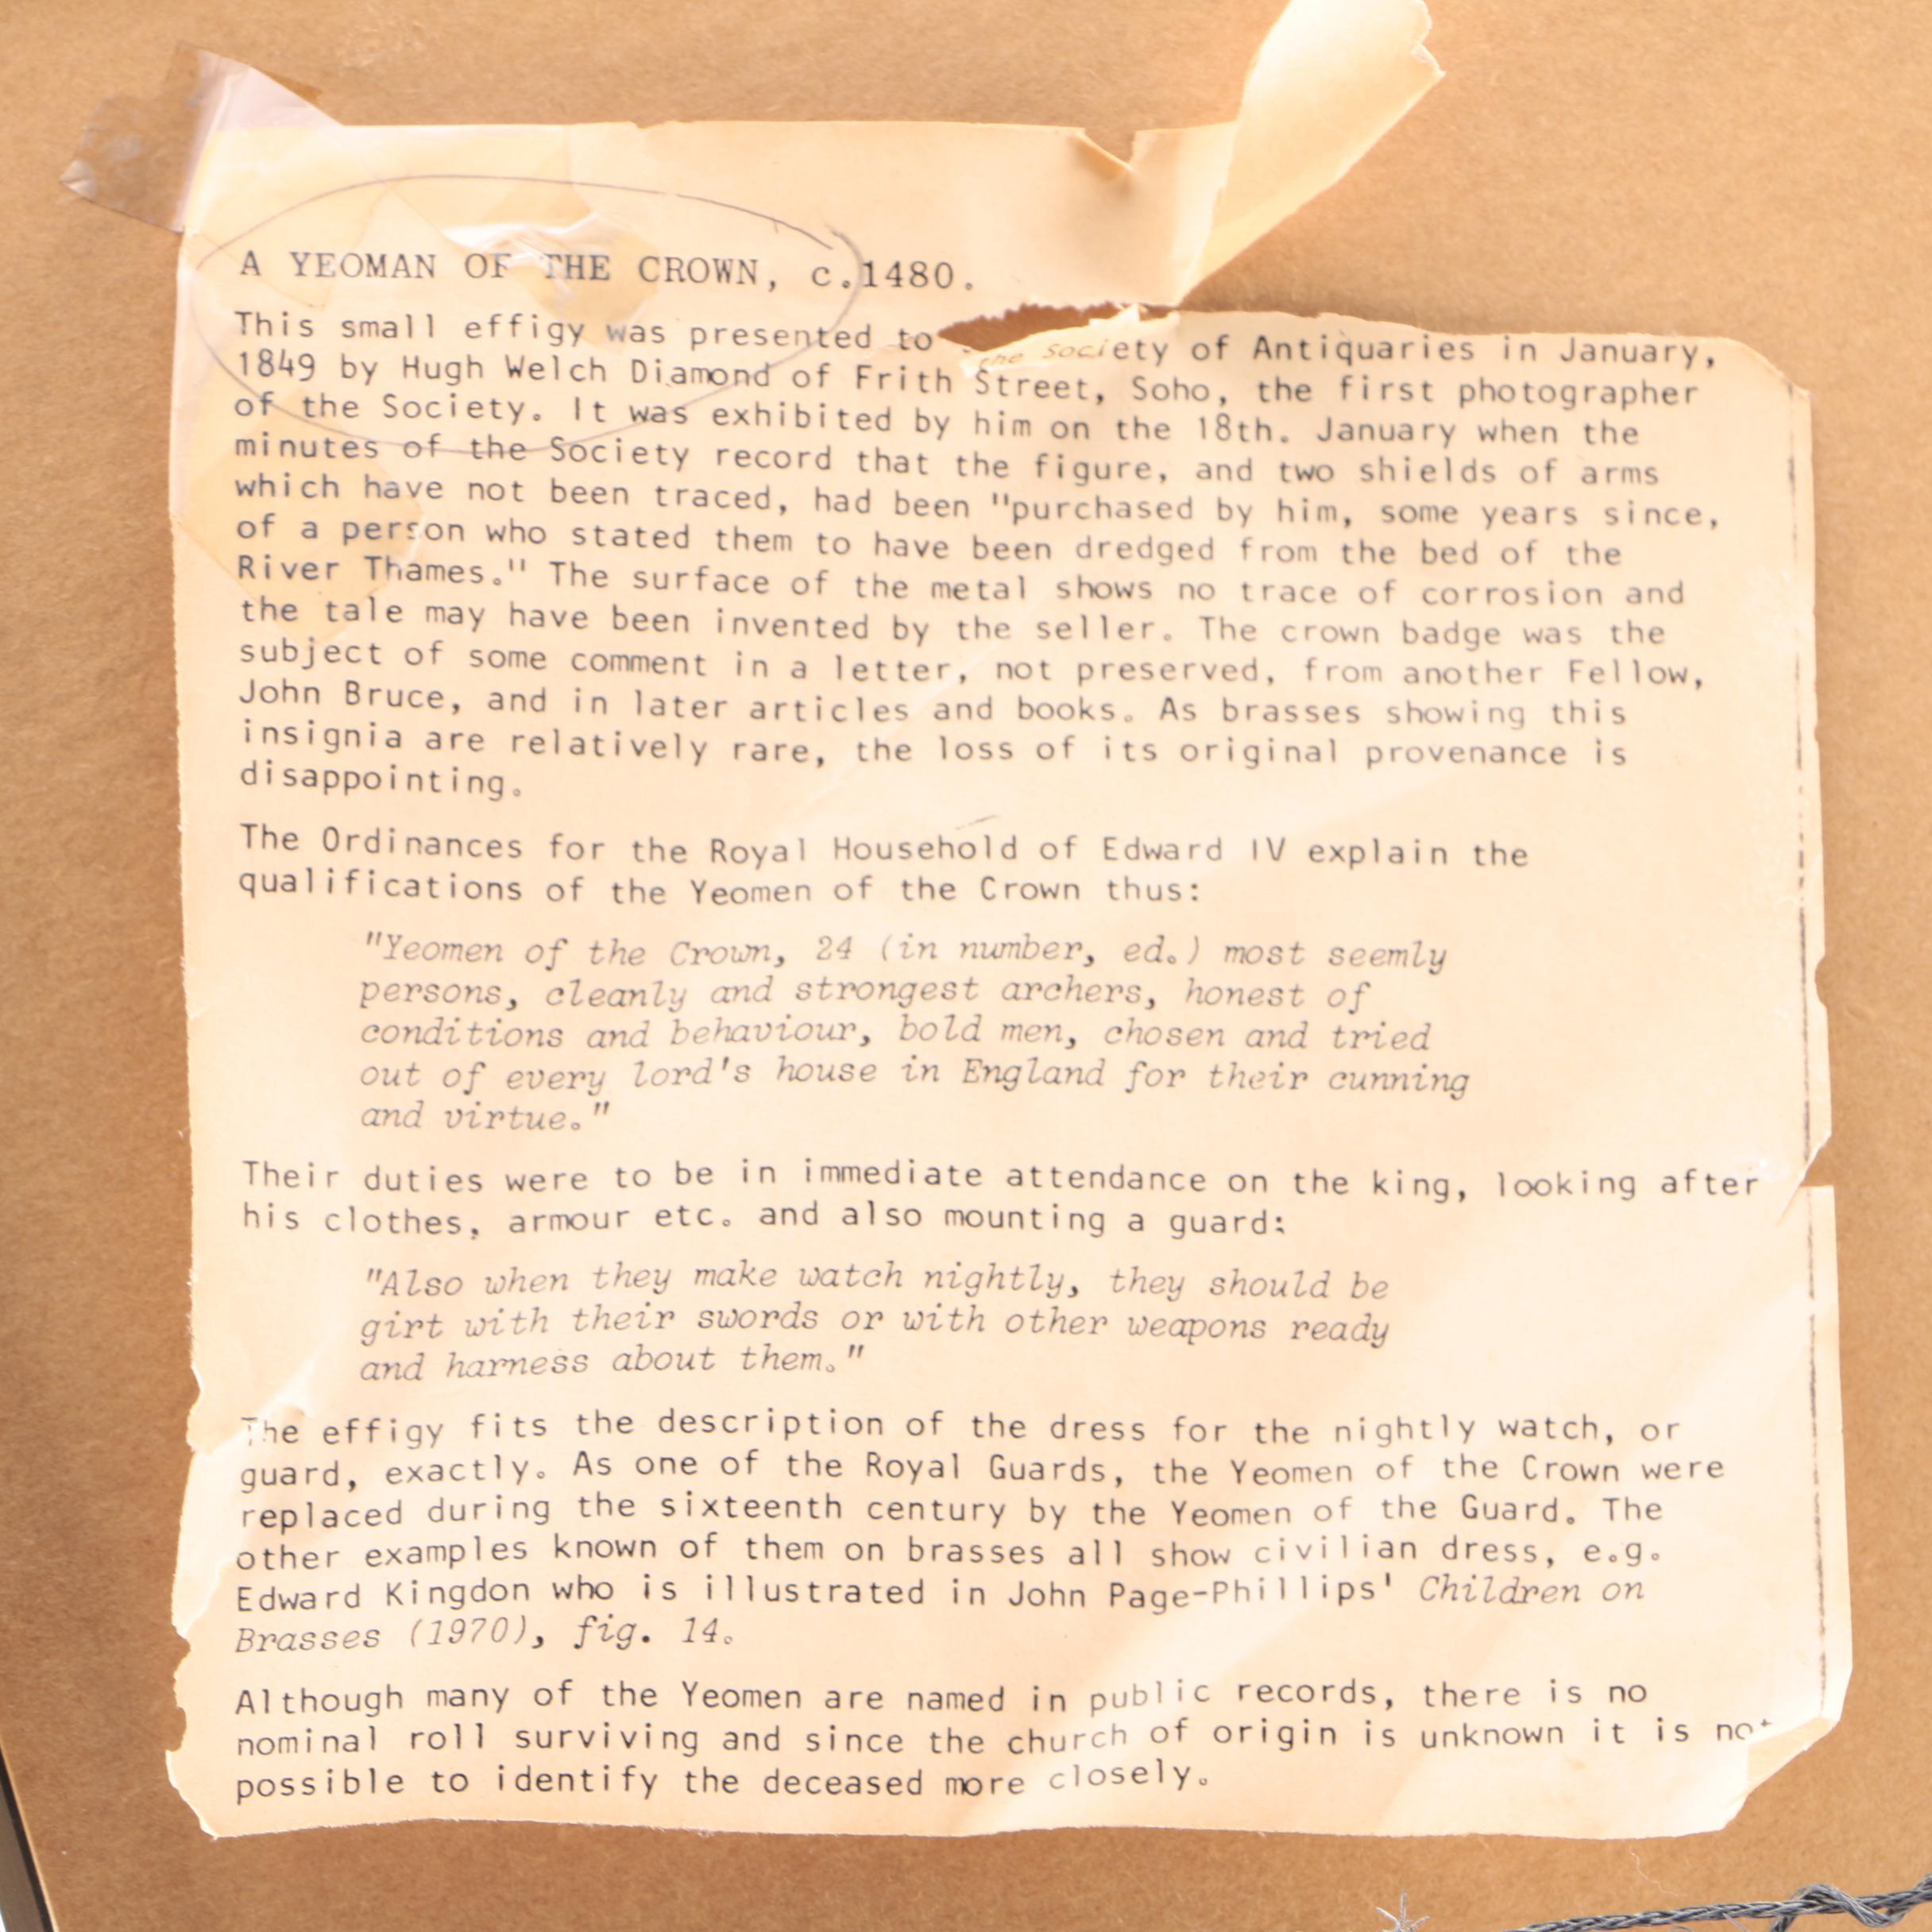 A YEOMAN OF THE CROWN, c.1480.
This small effigy was presented to the Society of Antiquaries in January,
1849 by Hugh Welch Diamond of Frith Street, Soho, the first photographer
of the Society. It was exhibited by him on the 18th. January when the
minutes of the Society record that the figure, and two shields of arms
which have not been traced, had been "purchased by him, some years since,
of a person who stated them to have been dredged from the bed of the
River Thames." The surface of the metal shows no trace of corrosion and
the tale may have been invented by the seller. The crown badge was the
subject of some comment in a letter, not preserved, from another Fellow,
John Bruce, and in later articles and books. As brasses showing this
insignia are relatively rare, the loss of its original provenance is
disappointing.
The Ordinances for the Royal Household of Edward IV explain the
qualifications of the Yeomen of the Crown thus:
"Yeomen of the Crown, 24 (in number, ed.) most seemly
persons, cleanly and strongest archers, honest of
conditions and behaviour, bold men, chosen and tried
out of every lord's house in England for their cunning
and virtue."
Their duties were to be in immediate attendance on the king, looking after
his clothes, armour etc. and also mounting a guard:
"Also when they make watch nightly, they should be
girt with their swords or with other weapons ready
and harness about them."
The effigy fits the description of the dress for the nightly watch, or
guard, exactly. As one of the Royal Guards, the Yeomen of the Crown were
replaced during the sixteenth century by the Yeomen of the Guard. The
other examples known of them on brasses all show civilian dress, e.g.
Edward Kingdon who is illustrated in John Page-Phillips' Children on
Brasses (1970), fig. 14.
Although many of the Yeomen are named in public records, there is no
nominal roll surviving and since the church of origin is unknown it is not
possible to identify the deceased more closely.